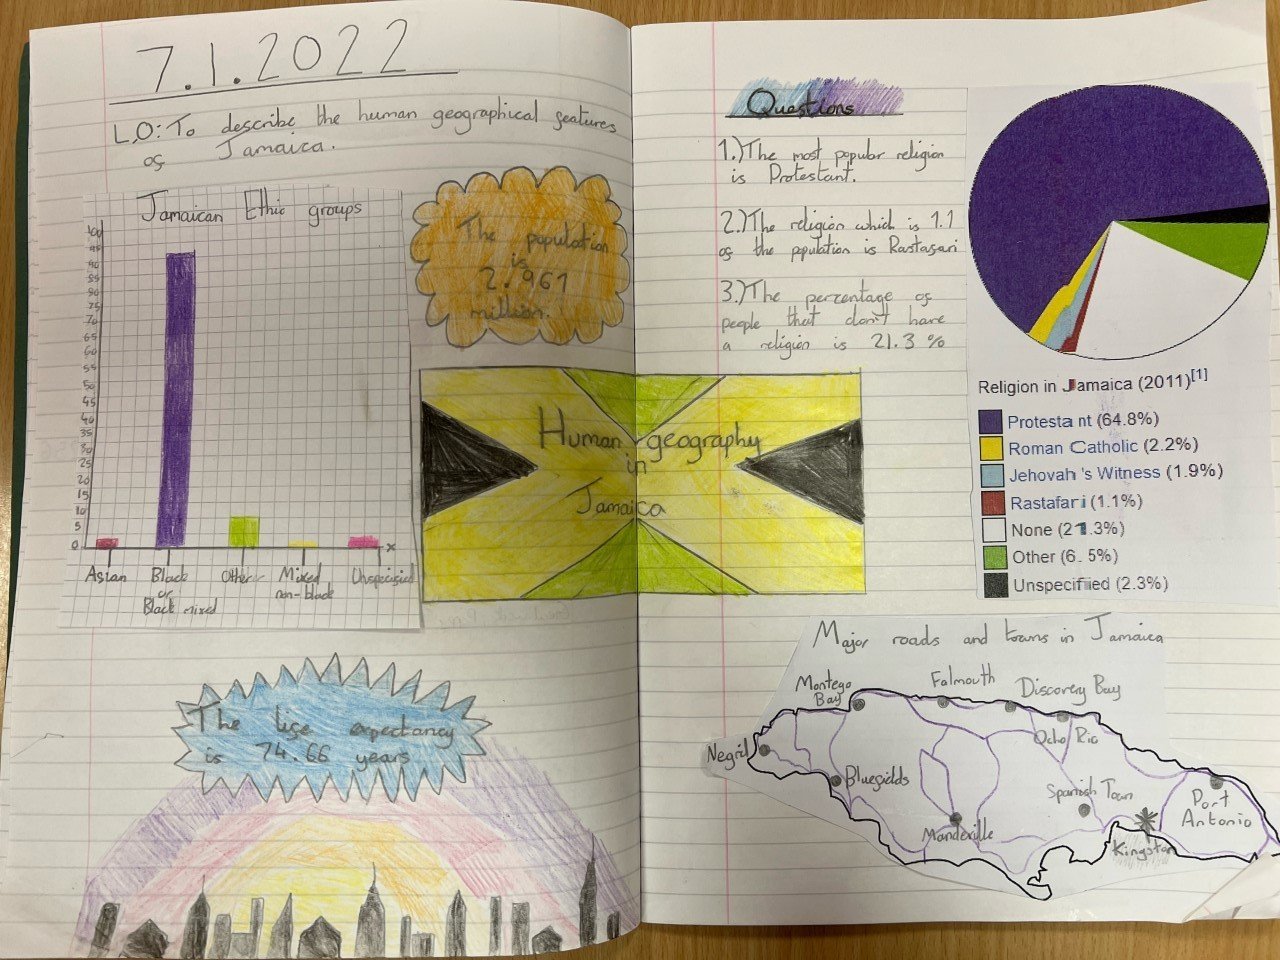 7.1.2022
L.O: To describe the human geographical features
of Jamaica.
Jamaican Ethic groups
100
95
90
85
80
75
70
65
60
55
50
45
40
35
30
25
20
15
10
5
0
x
Asian
Black
or
Black mixed
Other
Mixed
non-black
Unspecified
The population
is
2.961
million.
Human geography
in
Jamaica
The life expectancy
is 74.66 years
Questions
1.) The most popular religion
is Protestant.
2.) The religion which is 1.1
of the population is Rastafari
3.) The percentage of
people that don't have
a religion is 21.3 %
Religion in Jamaica (2011)[1]
Protestant (64.8%)
Roman Catholic (2.2%)
Jehovah's Witness (1.9%)
Rastafari (1.1%)
None (21.3%)
Other (6.5%)
Unspecified (2.3%)
Major roads and towns in Jamaica
Montego
Bay
Falmouth
Discovery Bay
Ocho Rio
Negril
Bluefields
Spanish Town
Port
Antonio
Mandeville
Kingston